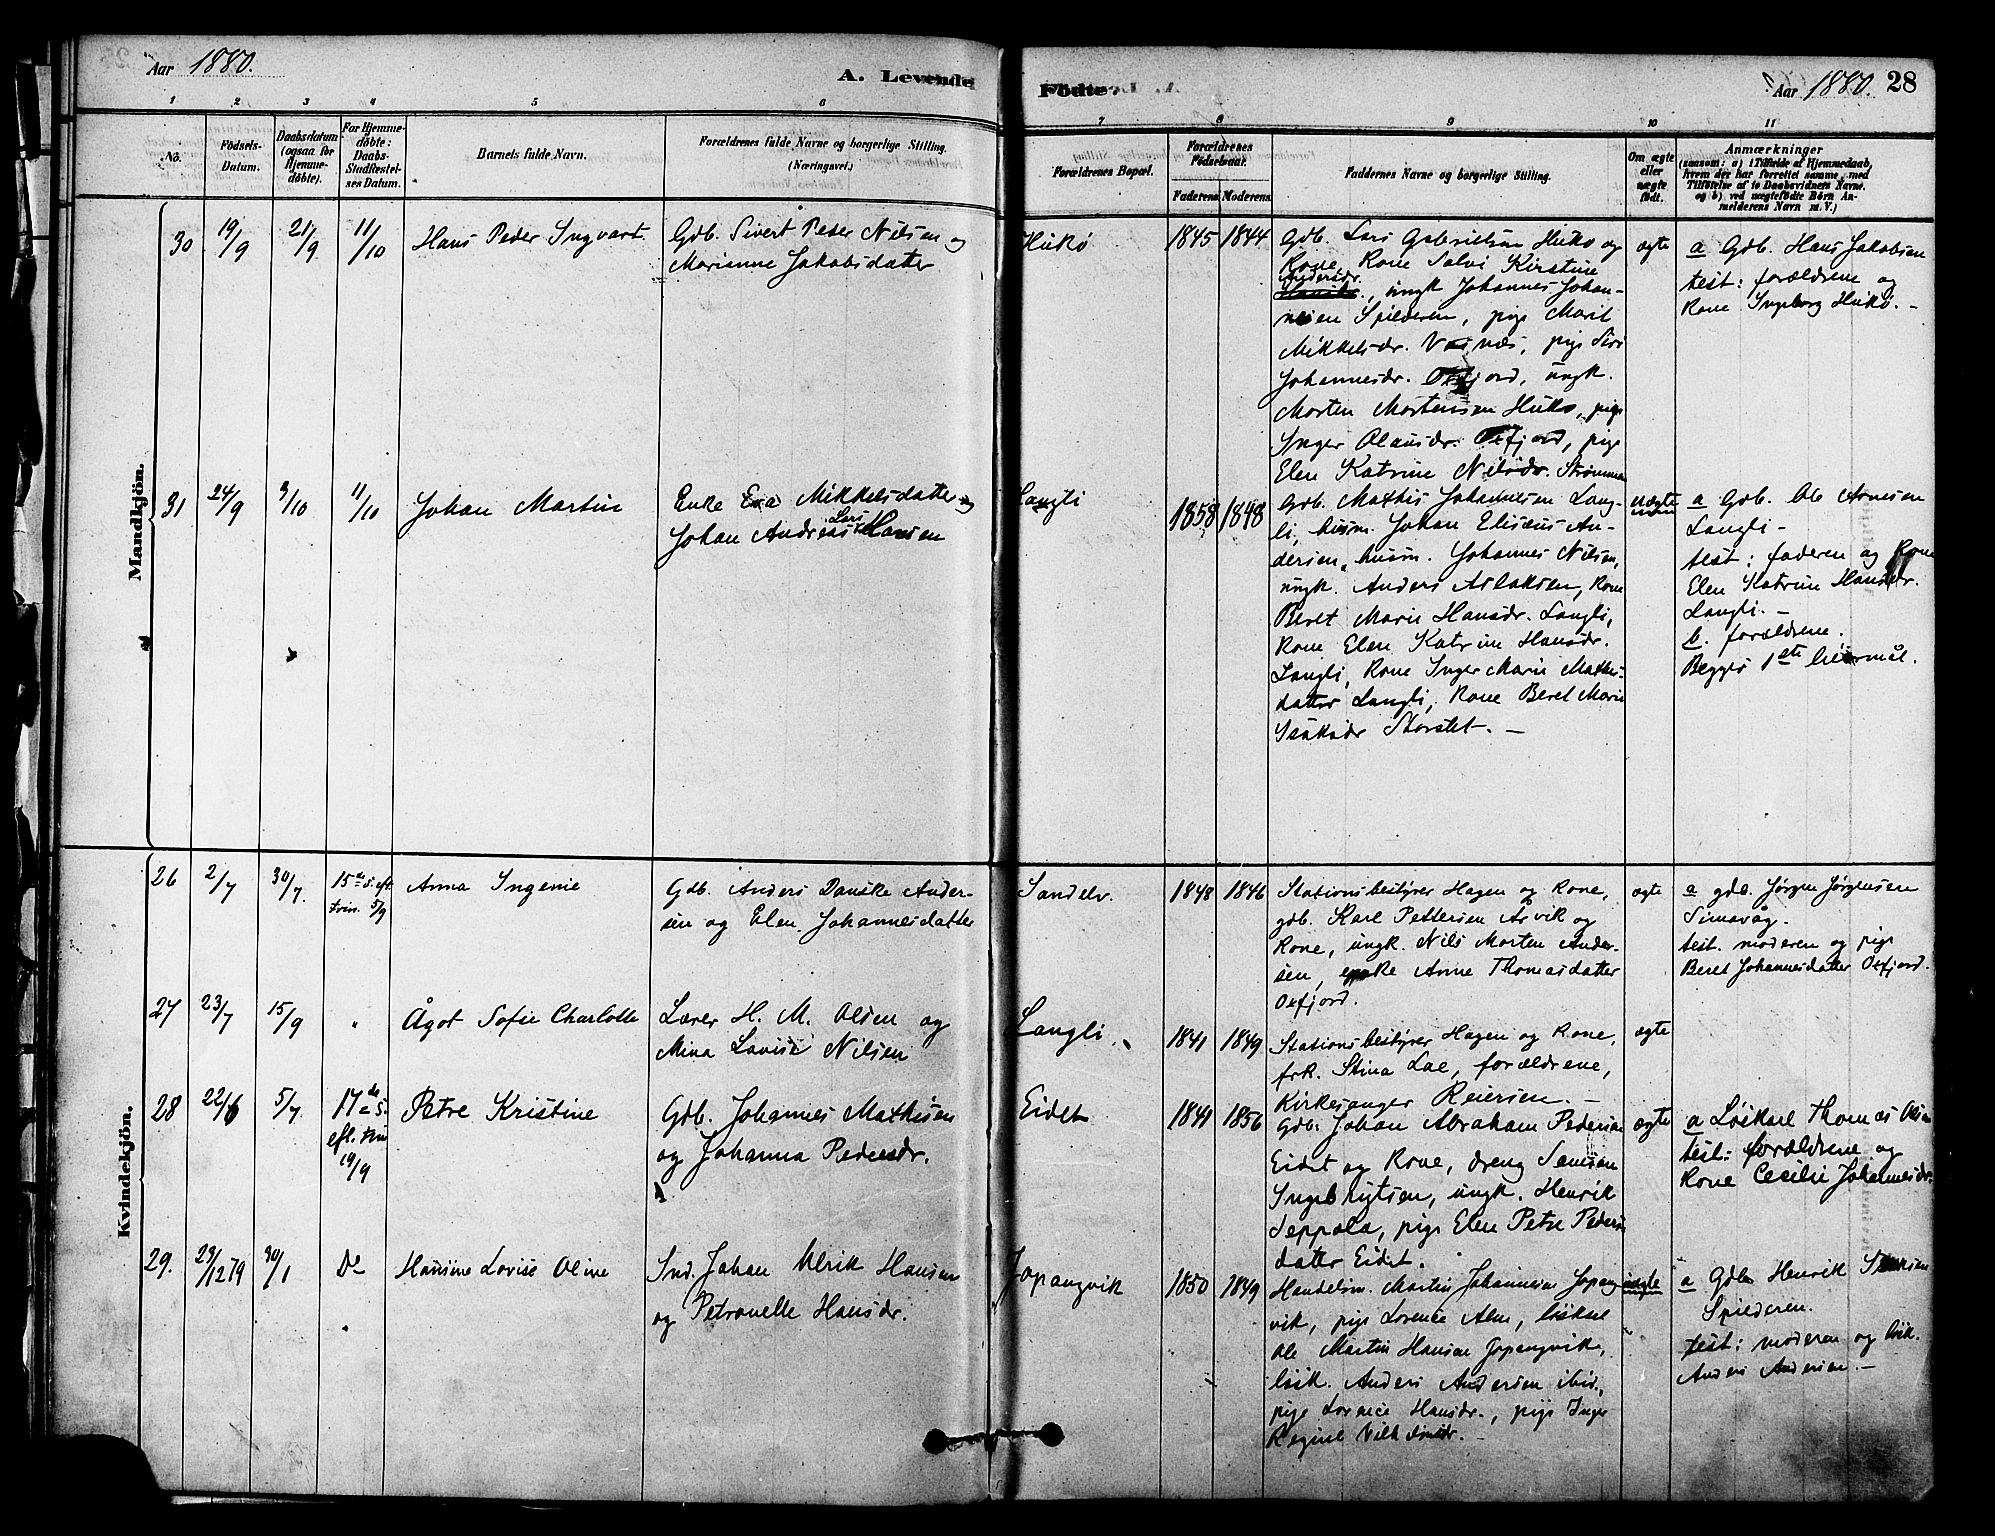 Aar 1880.
A. Levende
Födte.
Aar 1880.
28
1 2 3 4 5 6 7 8 9 10 11
No.
Födsels-
Datum.
Daabsdatum
(ogsaa for
Hjemme-
döbte).
For Hjemme-
döbte:
Daabs-
Stadfæstel-
ses Datum.
Barnets fulde Navn.
Forældrenes fulde Navne og borgerlige Stilling.
(Næringsvei.)
Forældrenes Bopæl.
Forældrenes
Födselsaar.
Faderens.
Moderens.
Faddernes Navne og borgerlige Stilling.
Om ægte
eller
uægte
födt.
Anmærkninger
(saasom: a) i Tilfælde af Hjemmedaab,
hvem der har forrettet samme, med
Tilföielse af to Daabsvidners Navne.
og b) ved uægtefödte Börn An-
melderens Navn m. V.)
Mandkjön.
30
19/9
21/9
11/10
Hans Peder Ingvart.
Gdb. Sivert Peder Nilsen og
Marianne Jakobsdatter
Hukø
1845
1844
Gdb. Lars Gabrielsen Hukø og
Kone, Kone Salvi Kirstine
Andersdr.
, ungk Johannes Johan-
nesen Spilderen, pige Marit
Mikkelsdr. Vasnæs, pige Siri
Johannesdr. Oxfjord, ungk.
Morten Mortensen Hukø, pige
Inger Olausdr. Oxfjord, pige
Elen Katrine Nilsdr. Strømmen
ægte
a Gdb. Hans Jakobsen
test: forældrene og
Kone Ingeborg Hukø. —
31
24/9
3/10
11/10
Johan Martin
Enke Eva Mikkelsdatter og
Johan Andreas Lars Hansen
Langli
1858
1848
Gdb. Mathis Johannesen Lang-
li, husm. Johan Eliseus An-
dersen, husm. Johannes Nilsen,
ungk. Anders Aslaksen, Kone
Beret Marie Hansdr. Langli,
Kone Elen Katrine Hansdr.
Langli, Kone Inger Marie Mathis-
datter Langli, Kone Beret Marie
Isaksdr Storslet. —
uægte
a Gdb. Ole Arnesen
Langli —
test: faderen og Kone
Elen Katrine Hansdr.
Langli. —
b. forældrene.
Begges 1ste leiermål.
Kvindekjön.
26
2/7
30/7.
15de s. eft.
trin. 5/9
Anna Ingenie
Gdb. Anders Danske Ander-
sen og Elen Johannesdatter
Sandelv.
1848
1846
Stationsbestyrer Hagen og Kone,
gdb. Karl Pettersen Arvik og
Kone, ungk. Nils Morten Ander-
sen, enke Anne Thomasdatter
Oxfjord.
ægte
a gdb. Jørgen Jørgensen
Simavåg.
test. moderen og pige
Beret Johannesdatter Oxfjord.
27
23/7
15/9
"
Ågot Sofie Charlotte
Lærer H. M. Olsen og
Mina Lovise Nilsen
Langli.
1841
1849
Stationsbestyrer Hagen og Kone,
frk. Stina Lae, forældrene,
Kirkesanger Reiersen. —
ægte
28
22/6
5/7
17de s.
eft. trin
19/9
Petre Kristine
Gdb. Johannes Mathisen
og Johanna Pedersdr.
Eidet
1841
1856
Gdb. Johan Abraham Pedersen
Eidet og Kone, dreng Samson
Ingebrigtsen, ungk. Henrik
Seppola, pige Elen Petre Peders-
datter Eidet.
ægte
a Løskarl Thomas Olsen
test: forældrene og
Kone Cecilie Johannesdr.
29.
23/12 79
30/1
Do
Hansine Lovise Oline
Ind. Johan Ulrik Hansen
og Petronelle Hansdr.
Jopangvik
1850
1849
Handelsm. Martin Johannesen Jopang-
vik, pige Lorence Alm, løskarl
Ole Martin Hansen Jopangvik,
løsk. Anders Andersen ibid.,
pige Lornice Hansdr., pige Inger
Regine Vilhelmsdr. —
uægte
a Gdb Henrik
Spilderen.
test: moderen og løsk.
Anders Andersen. —